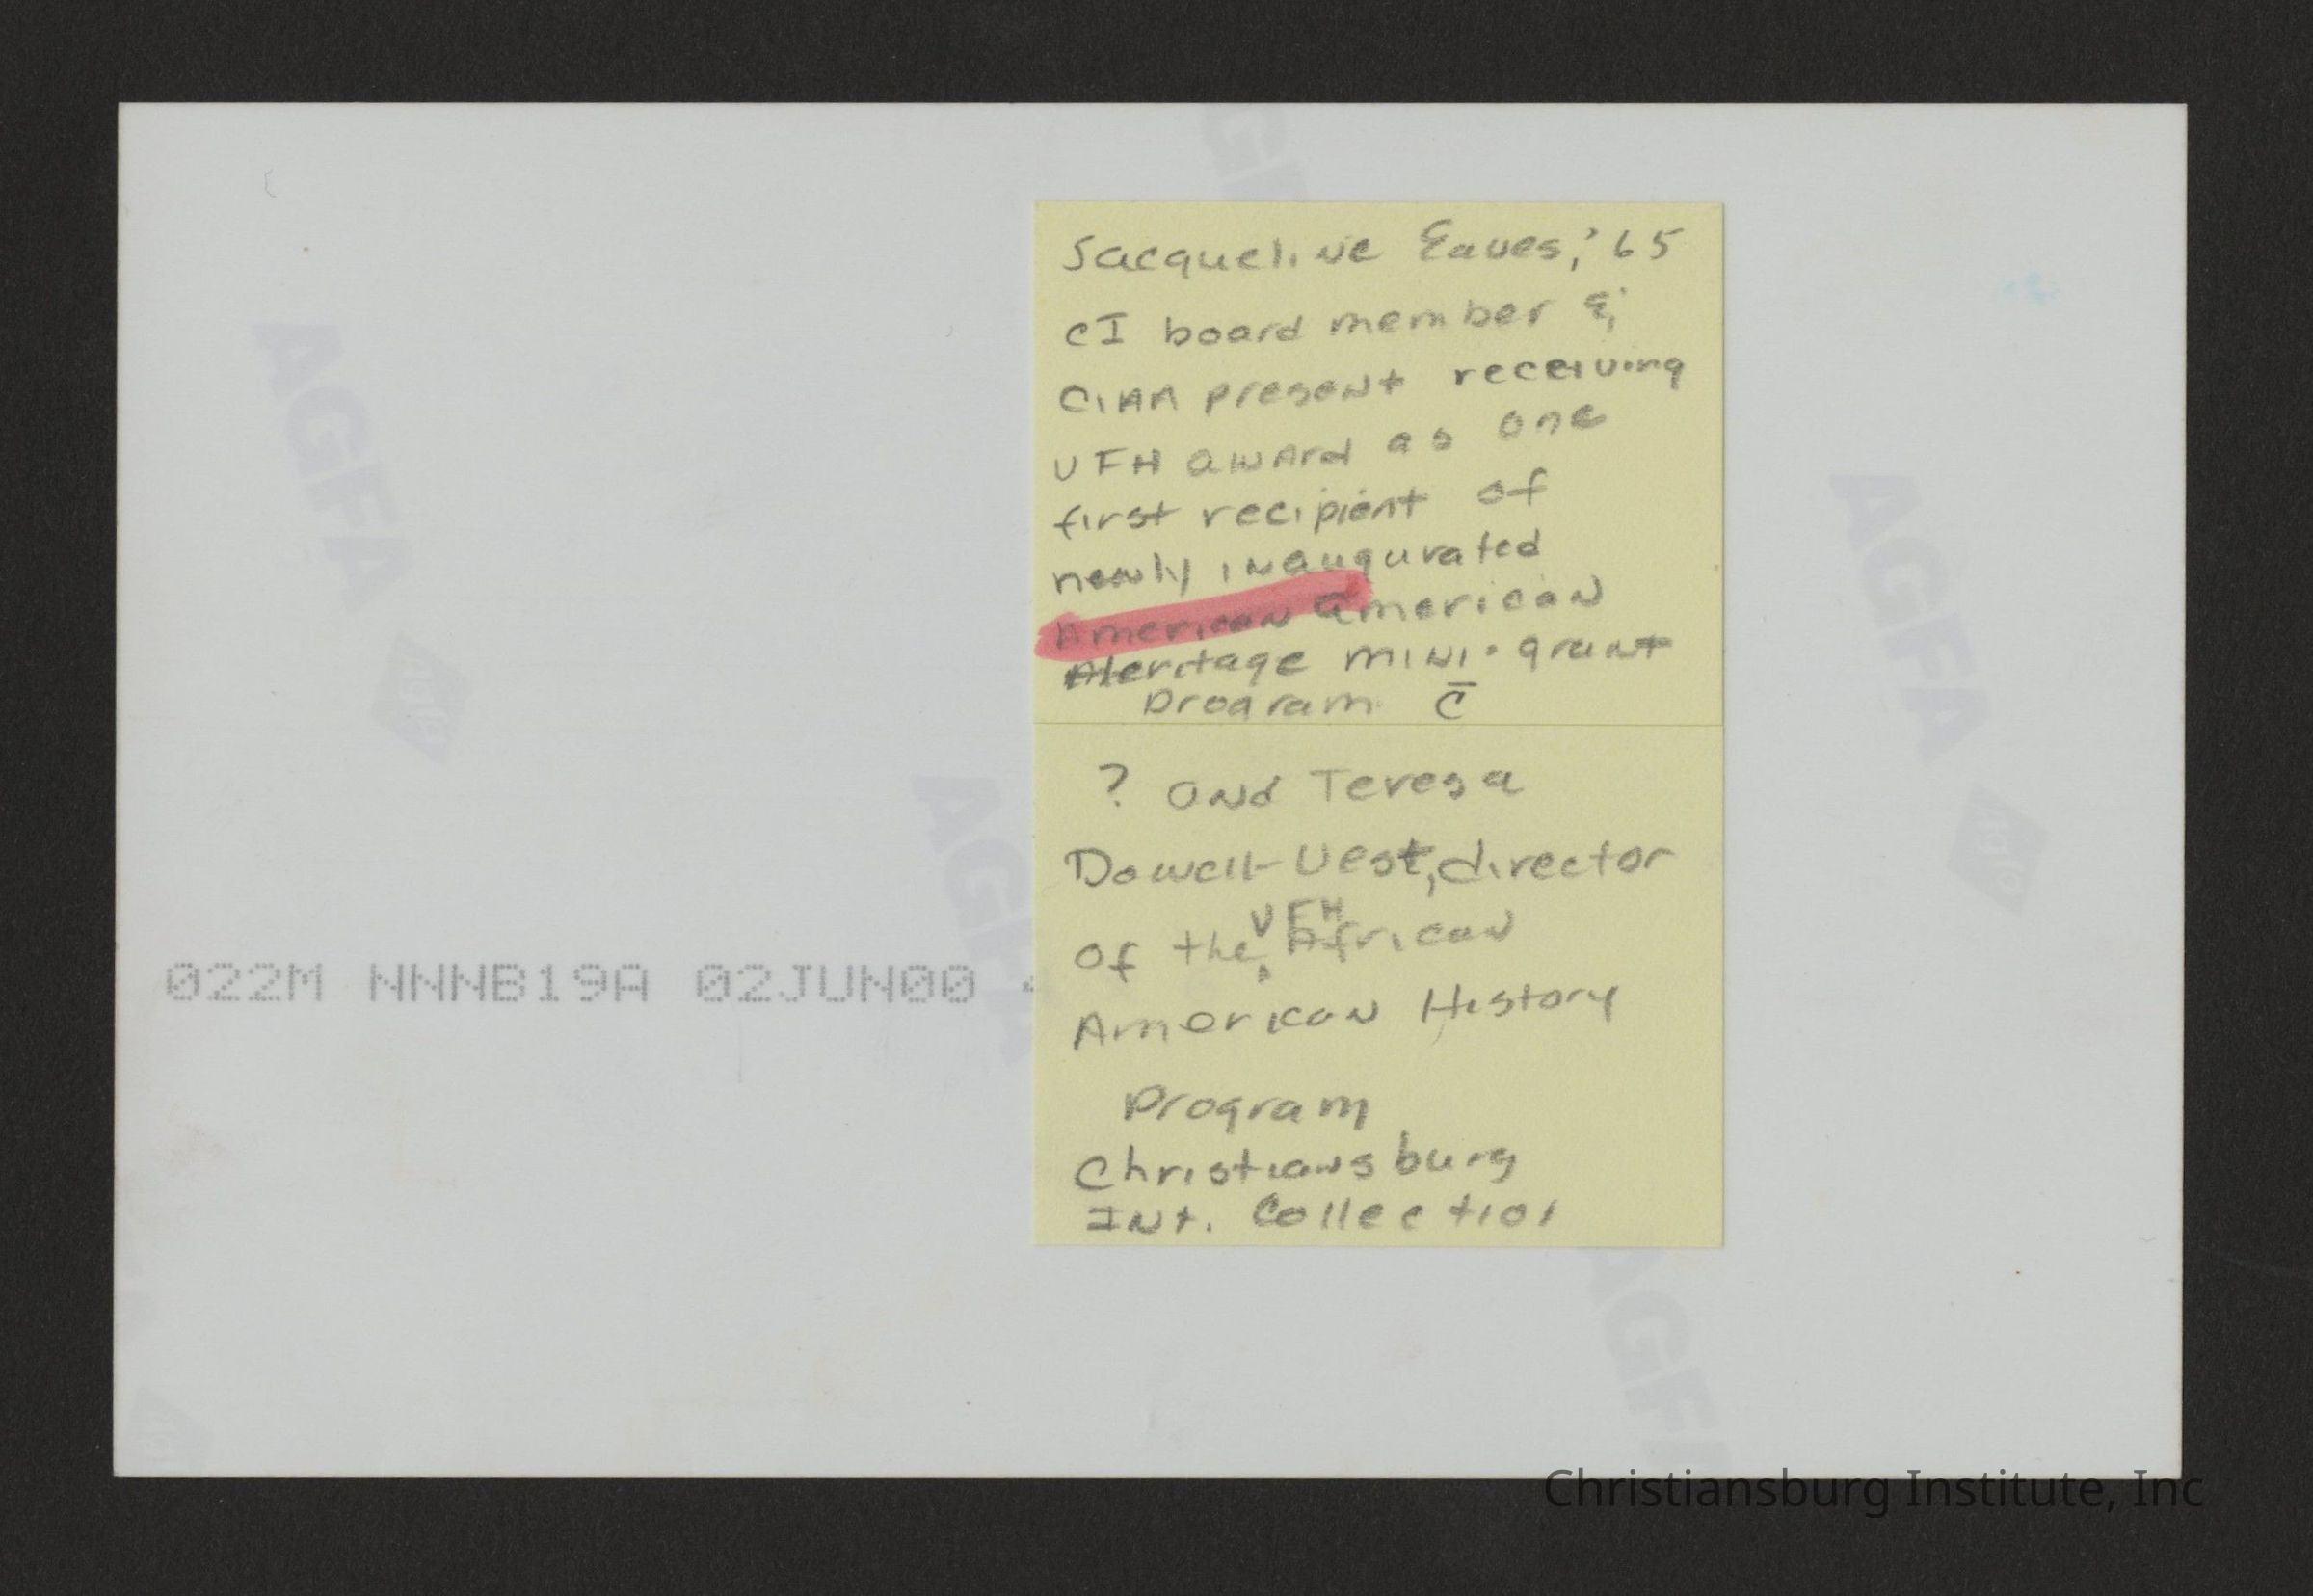 Jacqueline Eaves, '65
CI board member &
CIAA present receiving
VFH award as one
first recipient of
newly inaugurated
American American
Heritage mini-grant
program c̄
? and Teresa
Dowell-Vest, director
of the VFH African
American History
Program
Christiansburg
Int. Collection
022M NNNB19A 02JUN00
AGFA
AGFA
AGFA
Christiansburg Institute, Inc